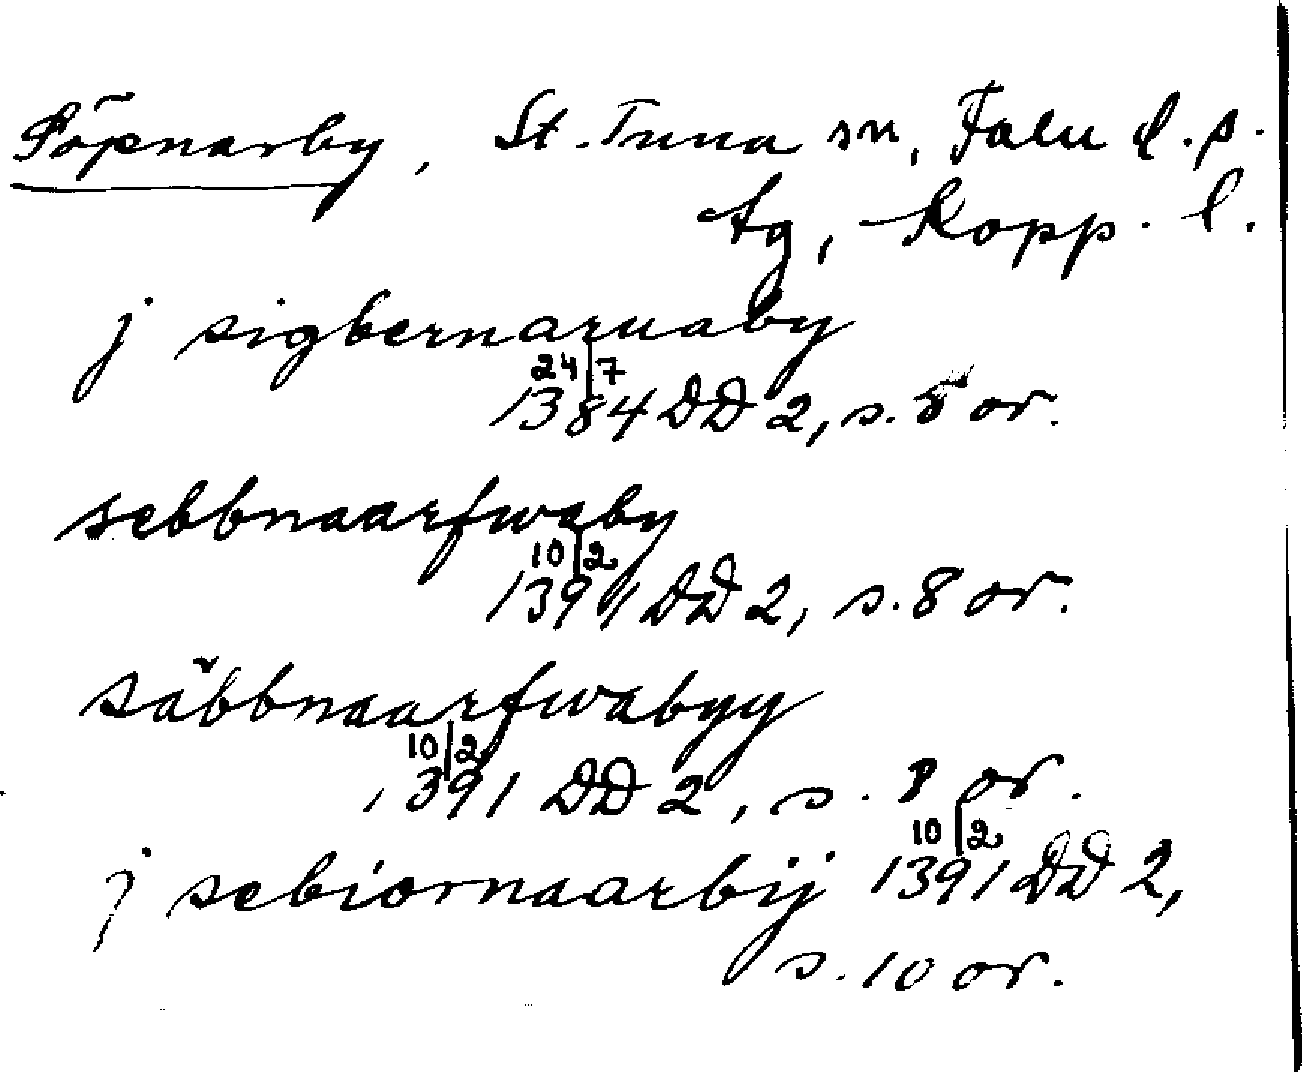 Söpnarby, St. Tuna sn, Falu d. s.
tg, Kopp. l.
j sigbernaruaby
24/7
1384 DD 2, s. 5 or.
sebbnaarfwaby
10/2
1391 DD 2, s. 8 or.
säbbnaarfwabyy
10/2
1391 DD 2, s. 8 or.
10/2
j sebiornaarbij 1391 DD 2,
s. 10 or.